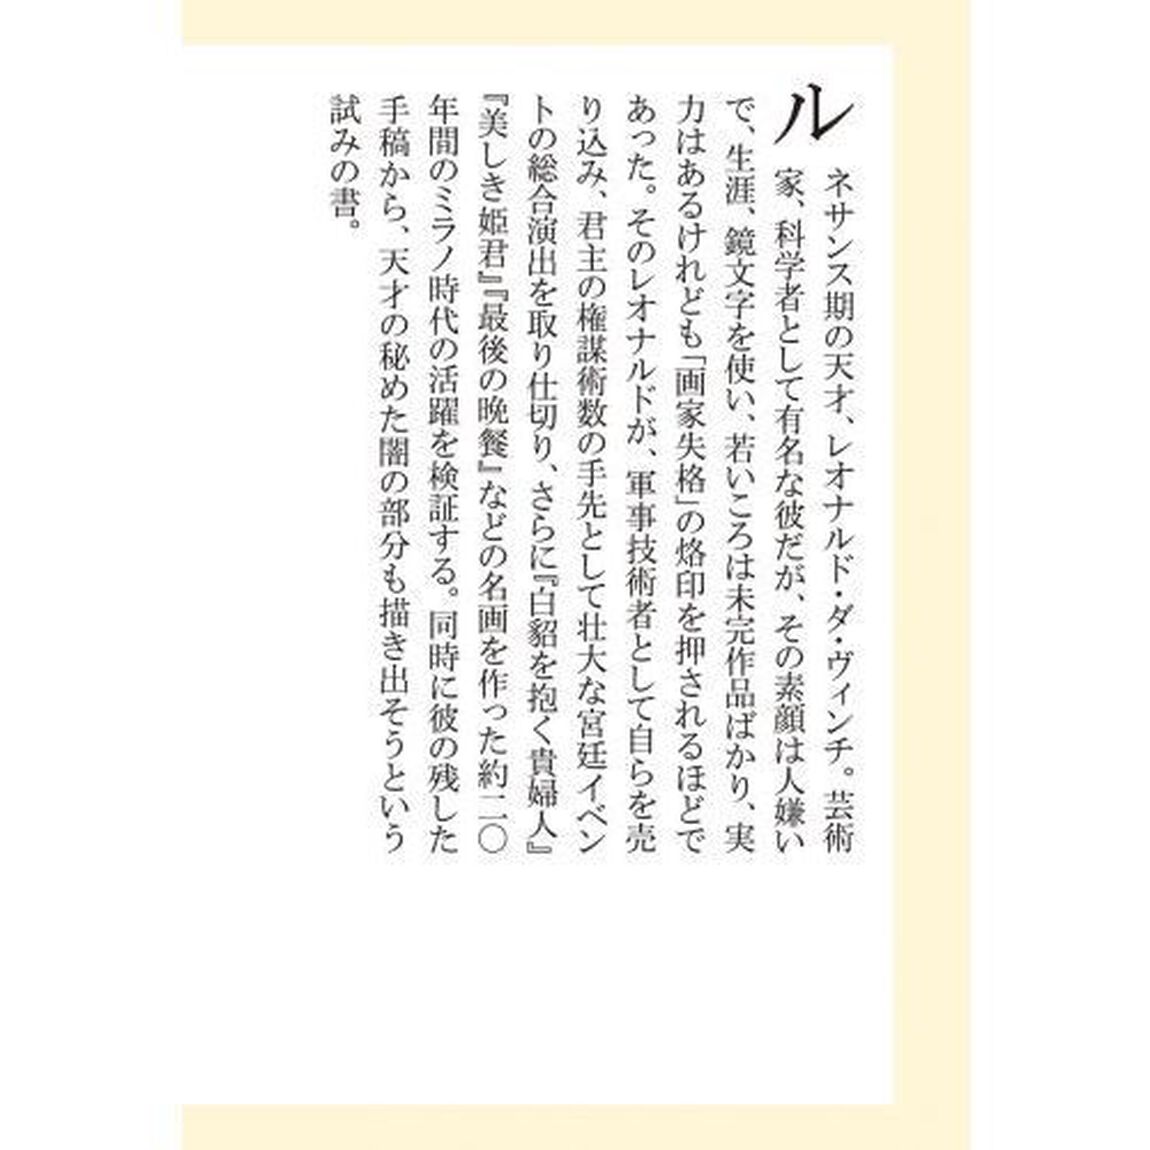 ルネサンス期の天才、レオナルド・ダ・ヴィンチ。芸術
家、科学者として有名な彼だが、その素顔は人嫌い
で、生涯、鏡文字を使い、若いころは未完作品ばかり、実
力はあるけれども「画家失格」の烙印を押されるほどで
あった。そのレオナルドが、軍事技術者として自らを売
り込み、君主の権謀術数の手先として壮大な宮廷イベン
トの総合演出を取り仕切り、さらに『白貂を抱く貴婦人』
『美しき姫君』『最後の晩餐』などの名画を作った約二〇
年間のミラノ時代の活躍を検証する。同時に彼の残した
手稿から、天才の秘めた闇の部分も描き出そうという
試みの書。